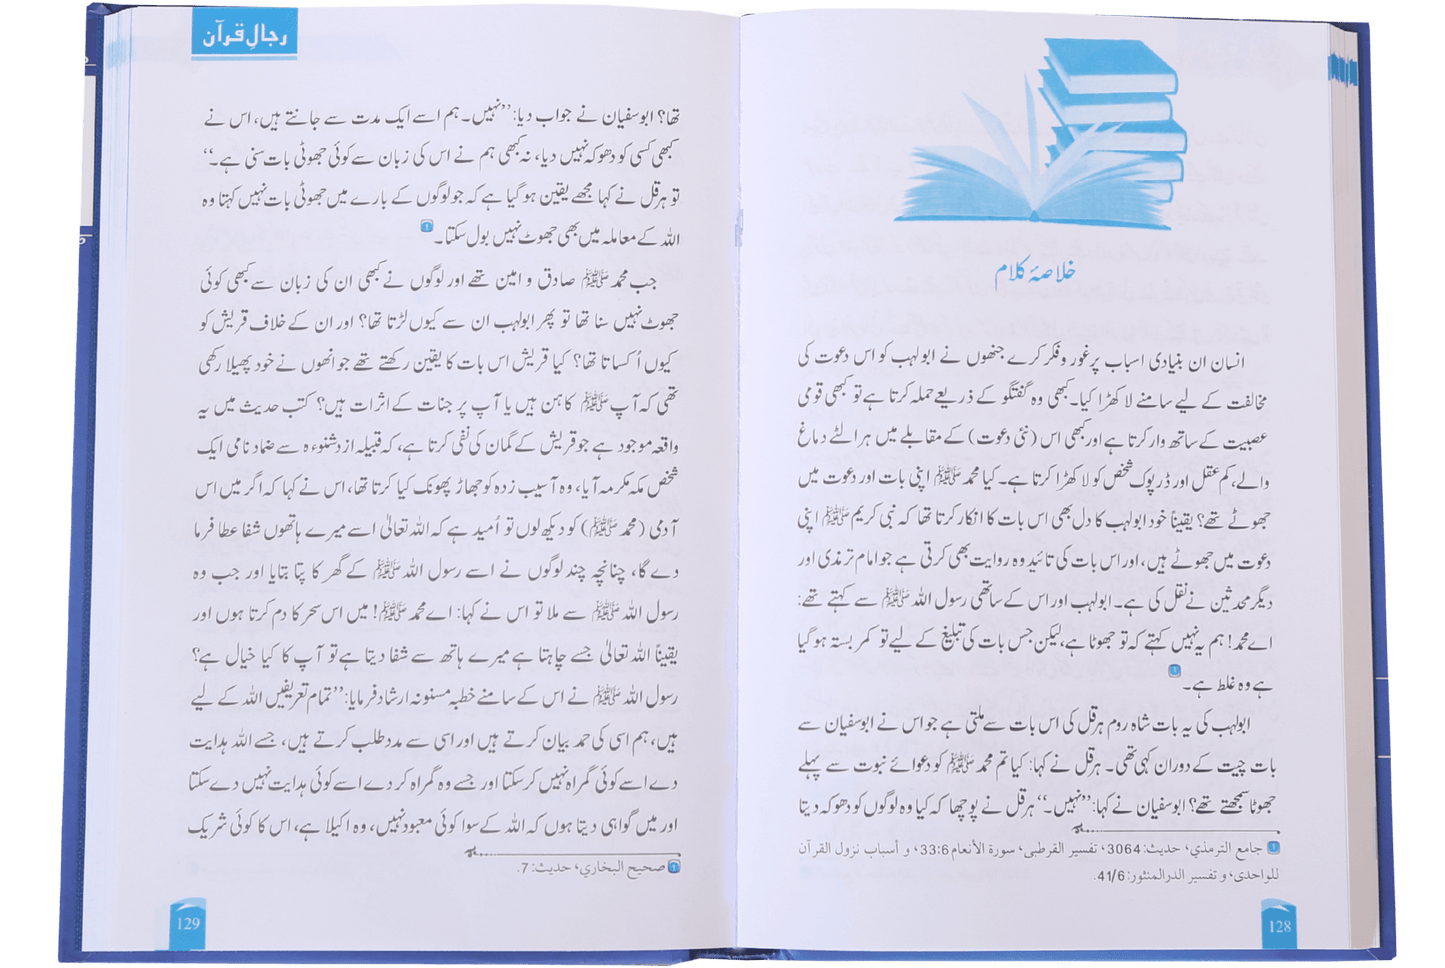 خلاصۂ کلام
انسان ان بنیادی اسباب پر غور و فکر کرے جنھوں نے ابولہب کو اس دعوت کی
مخالفت کے لیے سامنے لا کھڑا کیا۔ کبھی وہ گفتگو کے ذریعے حملہ کرتا ہے تو کبھی قومی
عصبیت کے ساتھ وار کرتا ہے اور کبھی اس (نئی دعوت) کے مقابلے میں ہر الٹے دماغ
والے، کم عقل اور ڈرپوک شخص کو لا کھڑا کرتا ہے۔ کیا محمد ﷺ اپنی بات اور دعوت میں
جھوٹے تھے؟ یقیناً خود ابولہب کا دل بھی اس بات کا انکار کرتا تھا کہ نبی کریم ﷺ اپنی
دعوت میں جھوٹے ہیں، اور اس بات کی تائید وہ روایت بھی کرتی ہے جو امام ترمذی اور
دیگر محدثین نے نقل کی ہے۔ ابولہب اور اس کے ساتھی رسول اللہ ﷺ سے کہتے تھے:
اے محمد! ہم یہ نہیں کہتے کہ تو جھوٹا ہے، لیکن جس بات کی تبلیغ کے لیے تو کمر بستہ ہو گیا
ہے وہ غلط ہے۔ 1
ابولہب کی یہ بات شاہ روم ہرقل کی اس بات سے ملتی ہے جو اس نے ابوسفیان سے
بات چیت کے دوران کہی تھی۔ ہرقل نے کہا: کیا تم محمد ﷺ کو دعوائے نبوت سے پہلے
جھوٹا سمجھتے تھے؟ ابوسفیان نے کہا: ’’نہیں۔‘‘ ہرقل نے پوچھا کہ کیا وہ لوگوں کو دھوکہ دیتا
1 جامع الترمذي، حديث: 3064، تفسير القرطبي، سورة الأنعام 33:6، و أسباب نزول القرآن
للواحدي، و تفسير الدر المنثور: 41/6.
128
رجالِ قرآن
تھا؟ ابوسفیان نے جواب دیا: ’’نہیں۔ ہم اسے ایک مدت سے جانتے ہیں، اس نے
کبھی کسی کو دھوکہ نہیں دیا، نہ کبھی ہم نے اس کی زبان سے کوئی جھوٹی بات سنی ہے۔‘‘
تو ہرقل نے کہا مجھے یقین ہو گیا ہے کہ جو لوگوں کے بارے میں جھوٹی بات نہیں کہتا وہ
اللہ کے معاملہ میں بھی جھوٹ نہیں بول سکتا۔ 1
جب محمد ﷺ صادق و امین تھے اور لوگوں نے کبھی ان کی زبان سے کبھی کوئی
جھوٹ نہیں سنا تھا تو پھر ابولہب ان سے کیوں لڑتا تھا؟ اور ان کے خلاف قریش کو
کیوں اُکساتا تھا؟ کیا قریش اس بات کا یقین رکھتے تھے جو انھوں نے خود پھیلا رکھی
تھی کہ آپ ﷺ کاہن ہیں یا آپ پر جنات کے اثرات ہیں؟ کتب حدیث میں یہ
واقعہ موجود ہے جو قریش کے گمان کی نفی کرتا ہے، کہ قبیلہ ازد شنوءہ سے ضماد نامی ایک
شخص مکہ مکرمہ آیا، وہ آسیب زدہ کو جھاڑ پھونک کیا کرتا تھا، اس نے کہا کہ اگر میں اس
آدمی (محمد ﷺ) کو دیکھ لوں تو اُمید ہے کہ اللہ تعالیٰ اسے میرے ہاتھوں شفا عطا فرما
دے گا، چنانچہ چند لوگوں نے اسے رسول اللہ ﷺ کے گھر کا پتا بتایا اور جب وہ
رسول اللہ ﷺ سے ملا تو اس نے کہا: اے محمد ﷺ! میں اس سحر کا دم کرتا ہوں اور
یقیناً اللہ تعالیٰ جسے چاہتا ہے میرے ہاتھ سے شفا دیتا ہے تو آپ کا کیا خیال ہے؟
رسول اللہ ﷺ نے اس کے سامنے خطبہ مسنونہ ارشاد فرمایا: ’’تمام تعریفیں اللہ کے لیے
ہیں، ہم اسی کی حمد بیان کرتے ہیں اور اسی سے مدد طلب کرتے ہیں، جسے اللہ ہدایت
دے اسے کوئی گمراہ نہیں کر سکتا اور جسے وہ گمراہ کر دے اسے کوئی ہدایت نہیں دے سکتا
اور میں گواہی دیتا ہوں کہ اللہ کے سوا کوئی معبود نہیں، وہ اکیلا ہے، اس کا کوئی شریک
1 صحيح البخاري، حديث: 7.
129